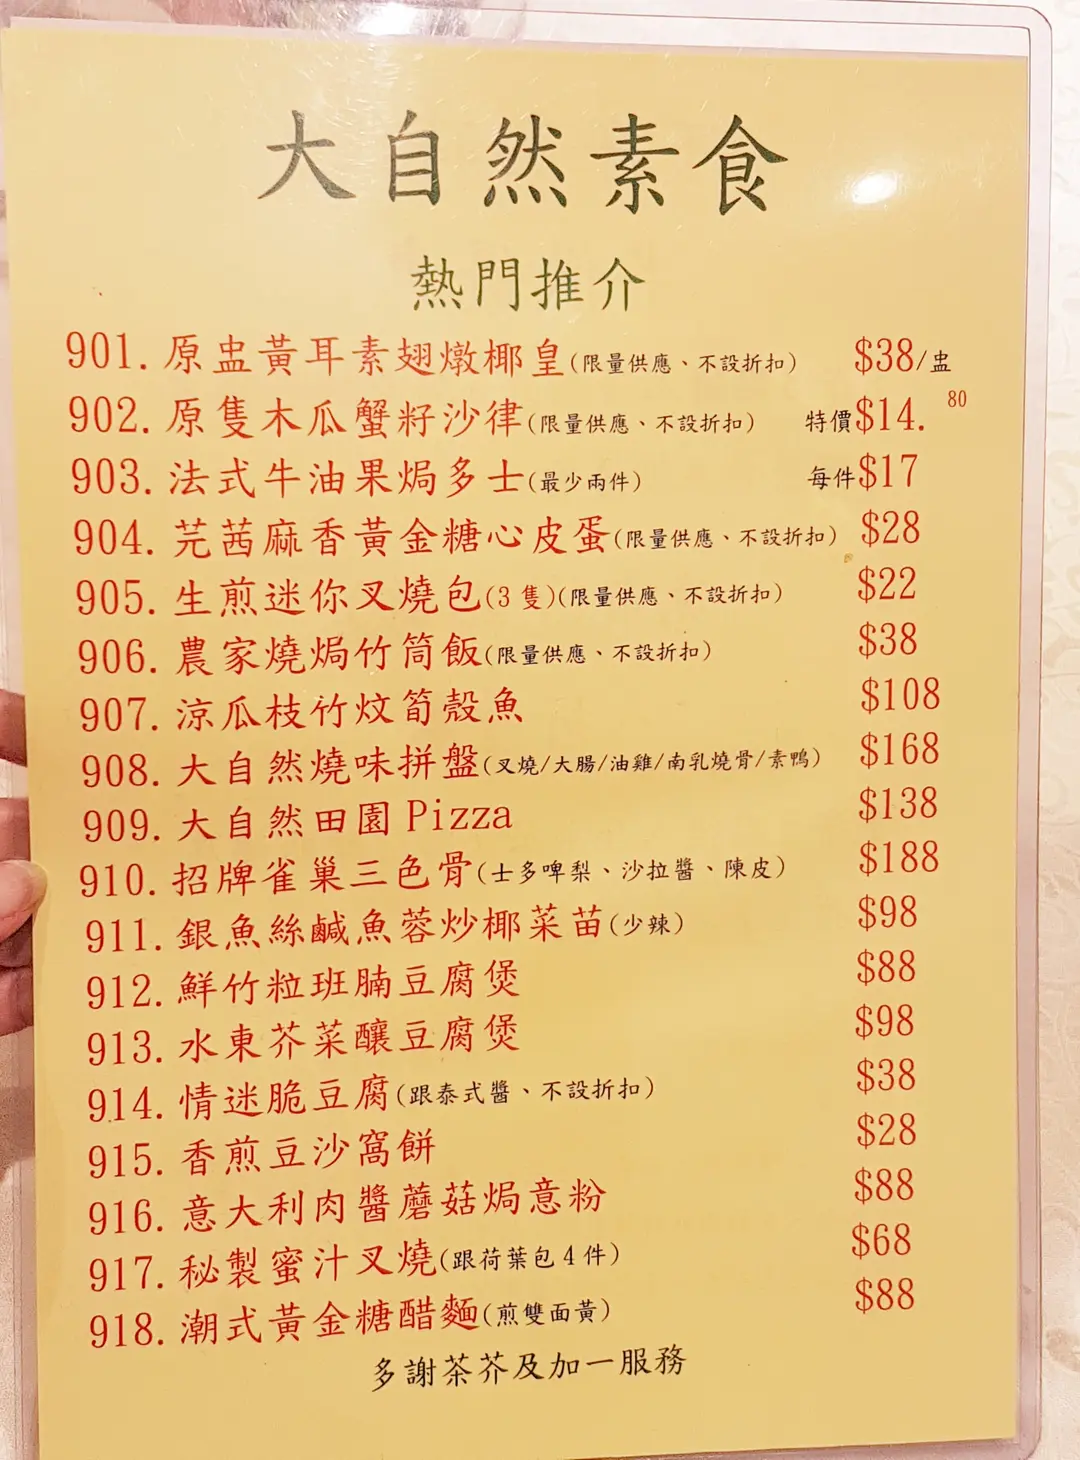 大自然素食
熱門推介
901. 原盅黃耳素翅燉椰皇(限量供應、不設折扣) $38/盅
902. 原隻木瓜蟹籽沙律(限量供應、不設折扣) 特價$14.80
903. 法式牛油果焗多士(最少兩件) 每件$17
904. 芫茜麻香黃金糖心皮蛋(限量供應、不設折扣) $28
905. 生煎迷你叉燒包(3隻)(限量供應、不設折扣) $22
906. 農家燒焗竹筒飯(限量供應、不設折扣) $38
907. 涼瓜枝竹炆筍殼魚 $108
908. 大自然燒味拼盤(叉燒/大腸/油雞/南乳燒骨/素鴨) $168
909. 大自然田園 Pizza $138
910. 招牌雀巢三色骨(士多啤梨、沙拉醬、陳皮) $188
911. 銀魚絲鹹魚蓉炒椰菜苗(少辣) $98
912. 鮮竹粒班腩豆腐煲 $88
913. 水東芥菜釀豆腐煲 $98
914. 情迷脆豆腐(跟泰式醬、不設折扣) $38
915. 香煎豆沙窩餅 $28
916. 意大利肉醬蘑菇焗意粉 $88
917. 秘製蜜汁叉燒(跟荷葉包4件) $68
918. 潮式黃金糖醋麵(煎雙面黃) $88
多謝茶芥及加一服務